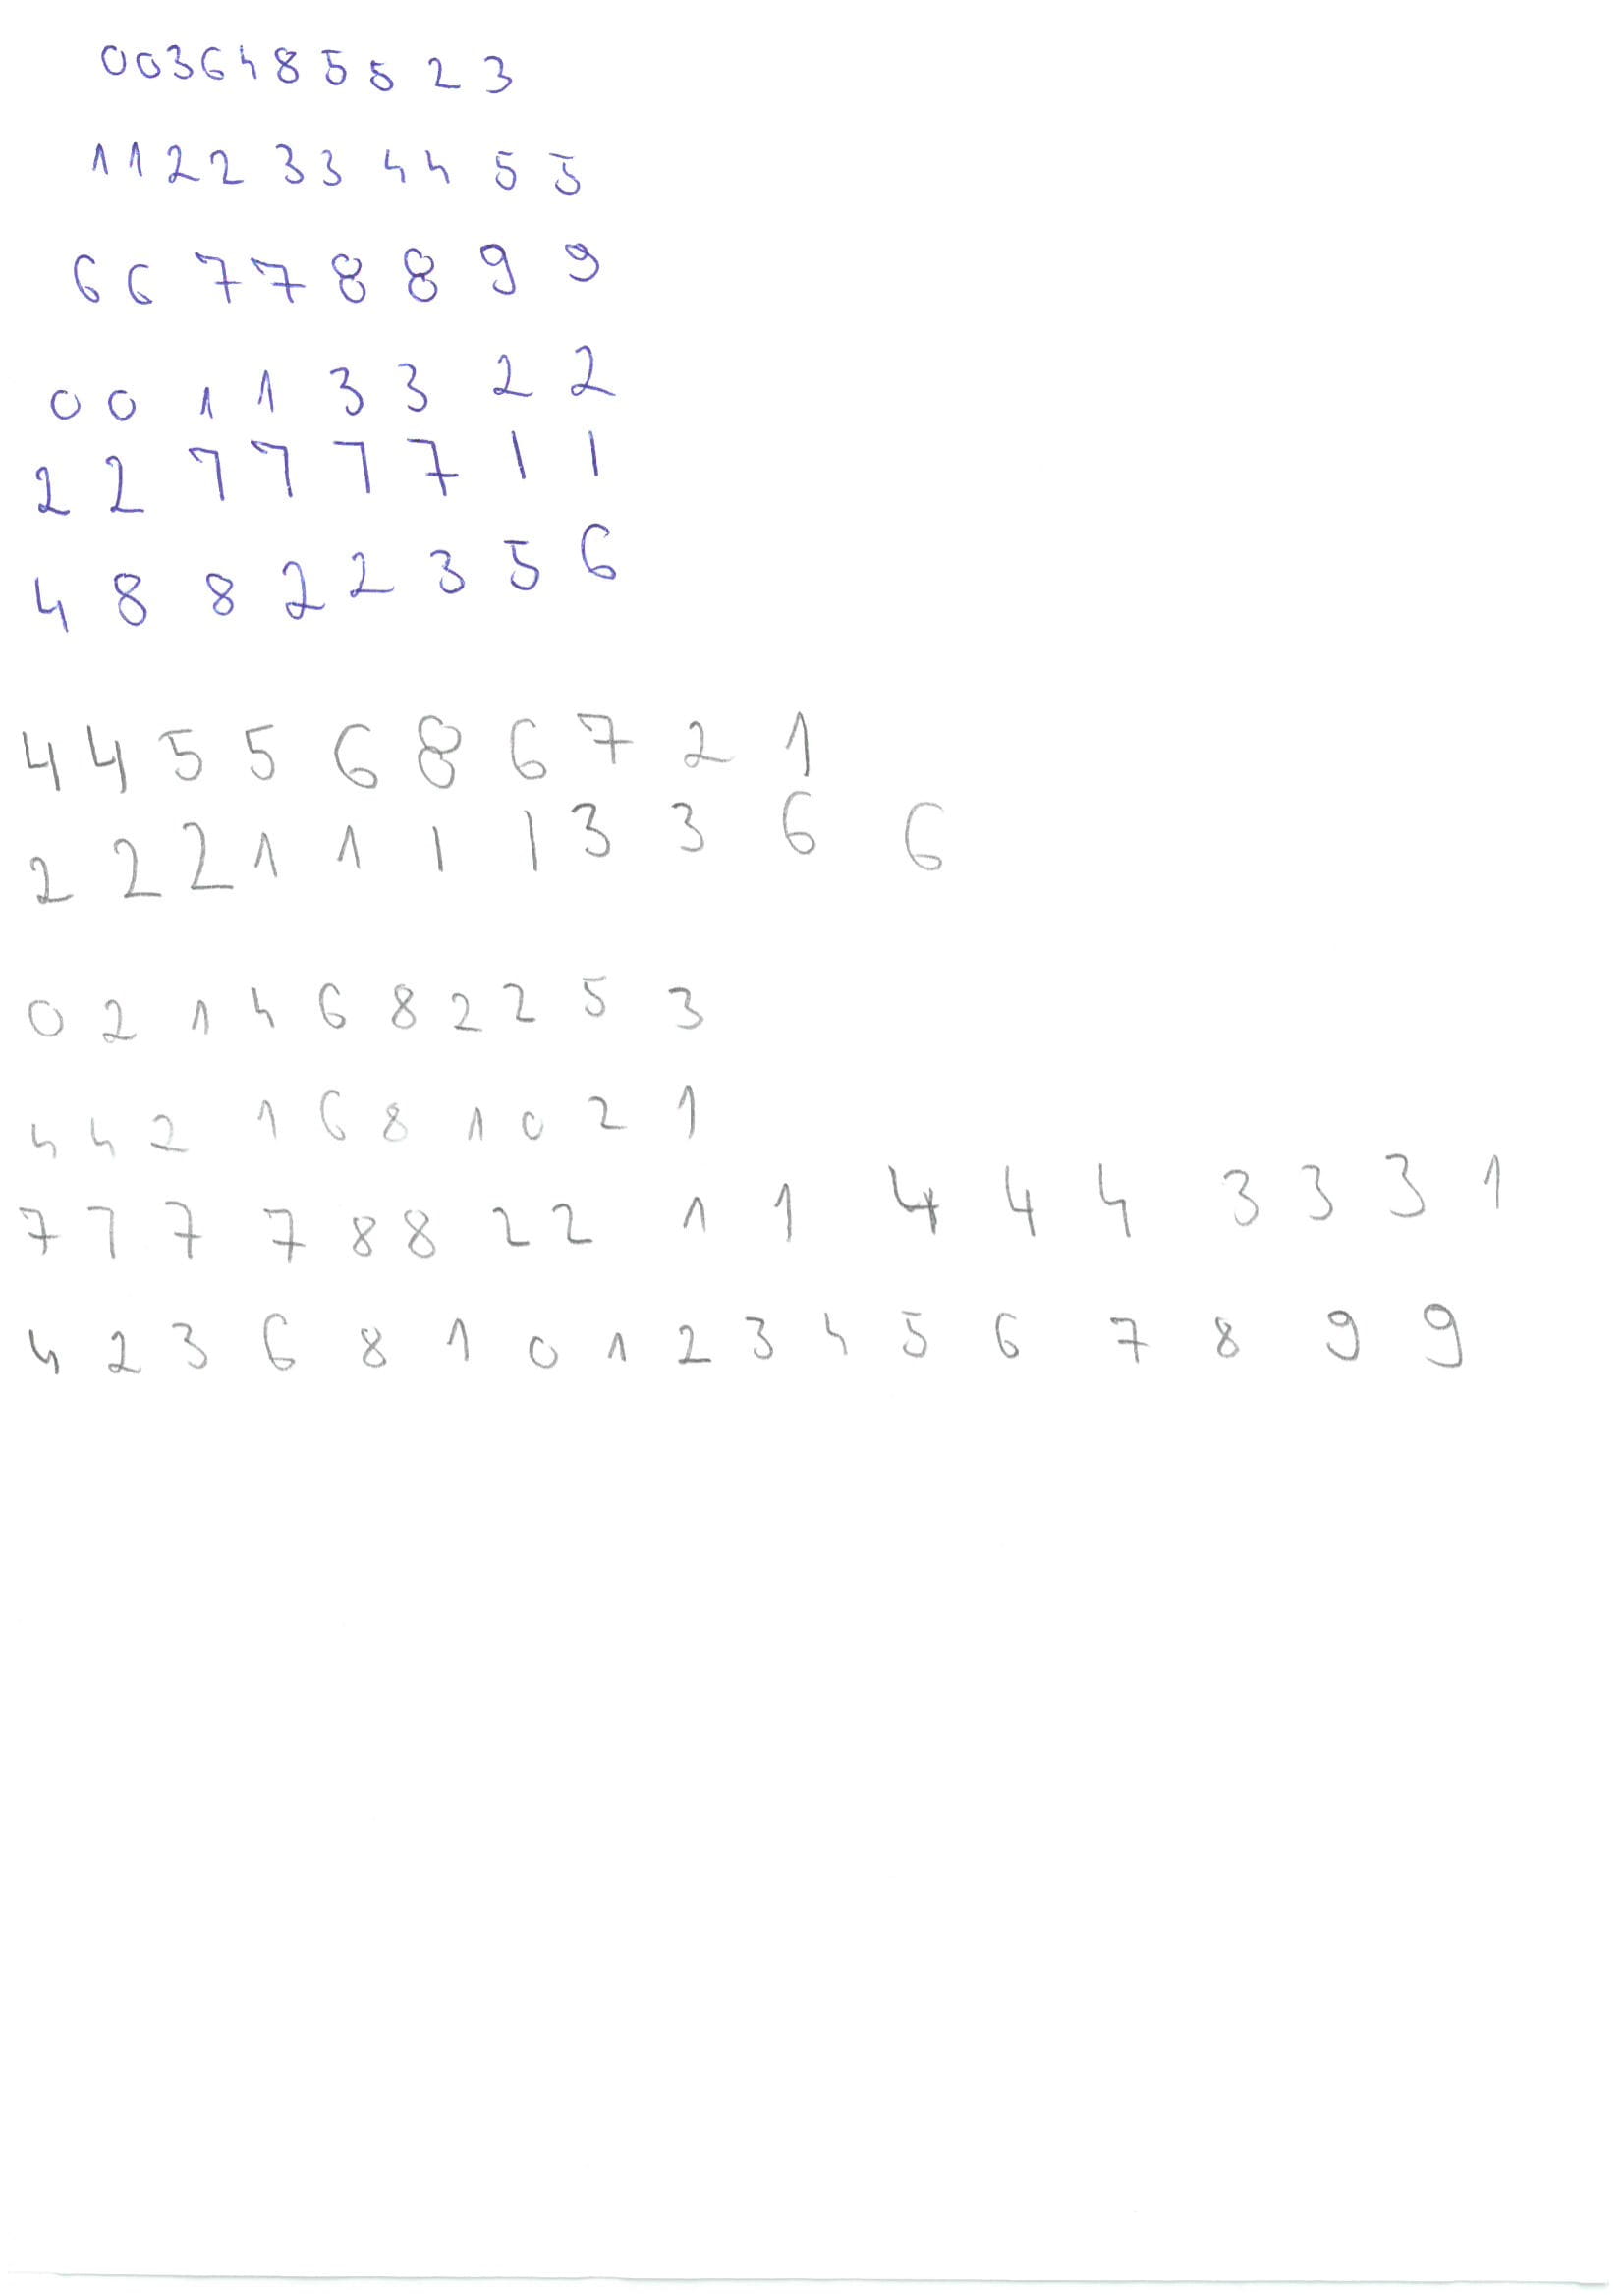 0036485523
1122334455
66778899
00113322
22777711
48822356
4455686721
22211113366
0214682253
4421681021
77778822114443331
42368101234567899